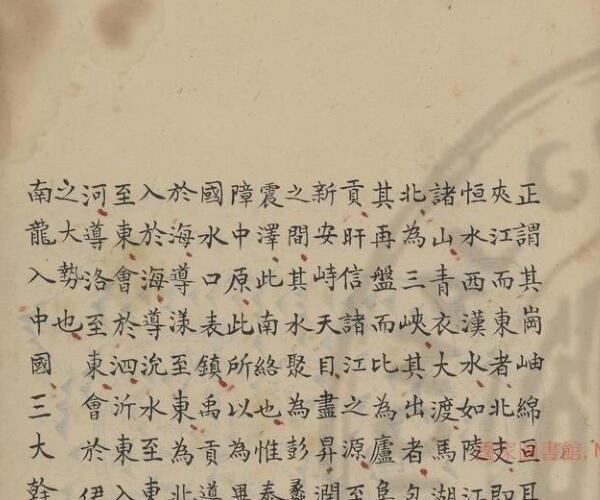 正謂其崗岫綿亘耳
夾江而東者北支即
恒水西漢水如陵江
諸山青衣大渡馬湖
北為三峽其出者
其再盤而比為廬阜
貢盱信諸江之源至
新安峙天目盡昇潤
之間其水聚為彭蠡
震澤此南絡也惟泰
障中原此所以為畢
國水口表鎮禹貢導
於海導漾至東為北
入於海導沇水至東
至東會於泗沂東入
河導洛至東會於伊
之大勢也
南龍入中國三大幹
國家圖書館, N